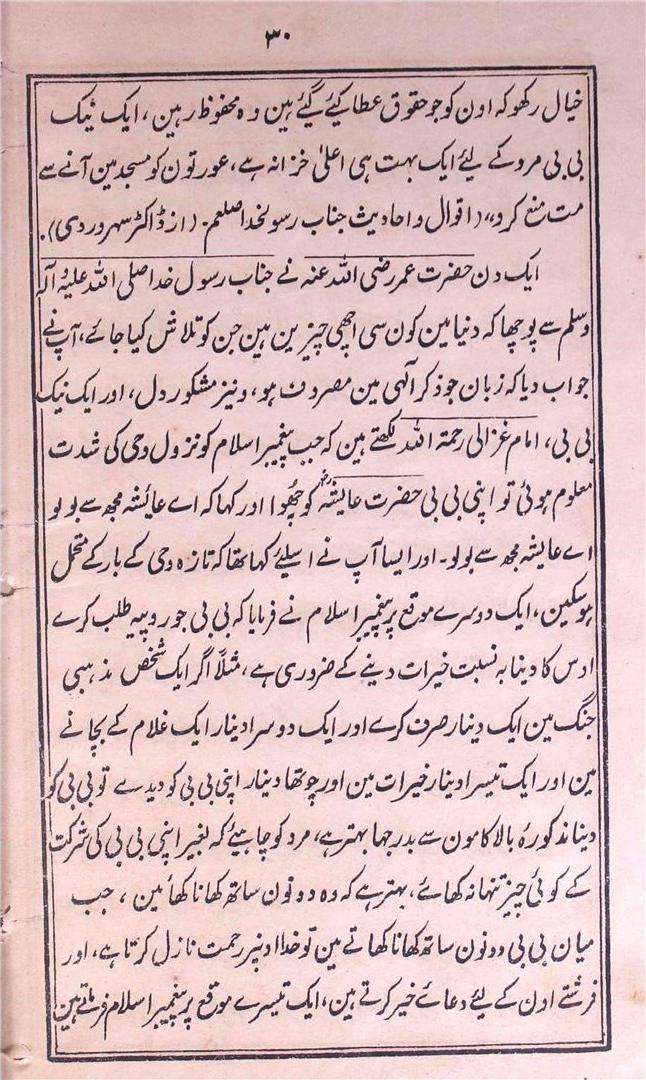 ۳۰
خیال رکھو کہ اون کو جو حقوق عطا کیئے گیئے ہین وہ محفوظ رہین ، ایک نیک
بی بی مرد کے لیئے ایک بہت ہی اعلیٰ خزانہ ہے ، عورتون کو مسجد مین آنے سے
مت منع کرو ،، ( اقوال و احادیث جناب رسولخدا صلعم ۔ ( از ڈاکٹر سہروردی ) ۔
ایک دن حضرت عمر رضی اللہ عنہ نے جناب رسول خدا صلی اللہ علیہ وآلہ
وسلم سے پوچھا کہ دنیا مین کون سی اچھی چیزین ہین جن کو تلاش کیا جائے ، آپ نے
جواب دیا کہ زبان جو ذکر الٰہی مین مصروف ہو ، و نیز مشکور دل ، اور ایک نیک
بی بی ، امام غزالی رحمۃ اللہ لکھتے ہین کہ جب پیغمبر اسلام کو نزول وحی کی شدت
معلوم ہوئی تو اپنی بی بی حضرت عایشہؓ کو چھُوا اور کہا کہ اے عائشہ مجھ سے بولو
اے عایشہ مجھ سے بولو ۔ اور ایسا آپ نے اسلیئے کہا تھا کہ تازہ وحی کے بار کے متحمل
ہوسکین ، ایک دوسرے موقع پر پیغمبر اسلام نے فرمایا کہ بی بی جو روپیہ طلب کرے
اوس کا دینا بہ نسبت خیرات دینے کے ضروری ہے ، مثلاً اگر ایک شخص مذہبی
جنگ مین ایک دینار صرف کرے اور ایک دوسرا دینار ایک غلام کے بچانے
مین اور ایک تیسرا دینار خیرات مین اور چوتھا دینار اپنی بی بی کو دیدے تو بی بی کو
دینا مذکورہ بالا کامون سے بدرجہا بہتر ہے ، مرد کو چاہیئے کہ بغیر اپنی بی بی کی شرکت
کے کوئی چیز تنہا نہ کھائے ، بہتر ہے کہ وہ دونون ساتھ کھانا کھائین ، جب
میان بی بی دونون ساتھ کھانا کھاتے ہین تو خدا اونپر رحمت نازل کرتا ہے ، اور
فرشتے اون کے لیئے دعائے خیر کرتے ہین ، ایک تیسرے موقع پر پیغمبر اسلام فرماتے ہین